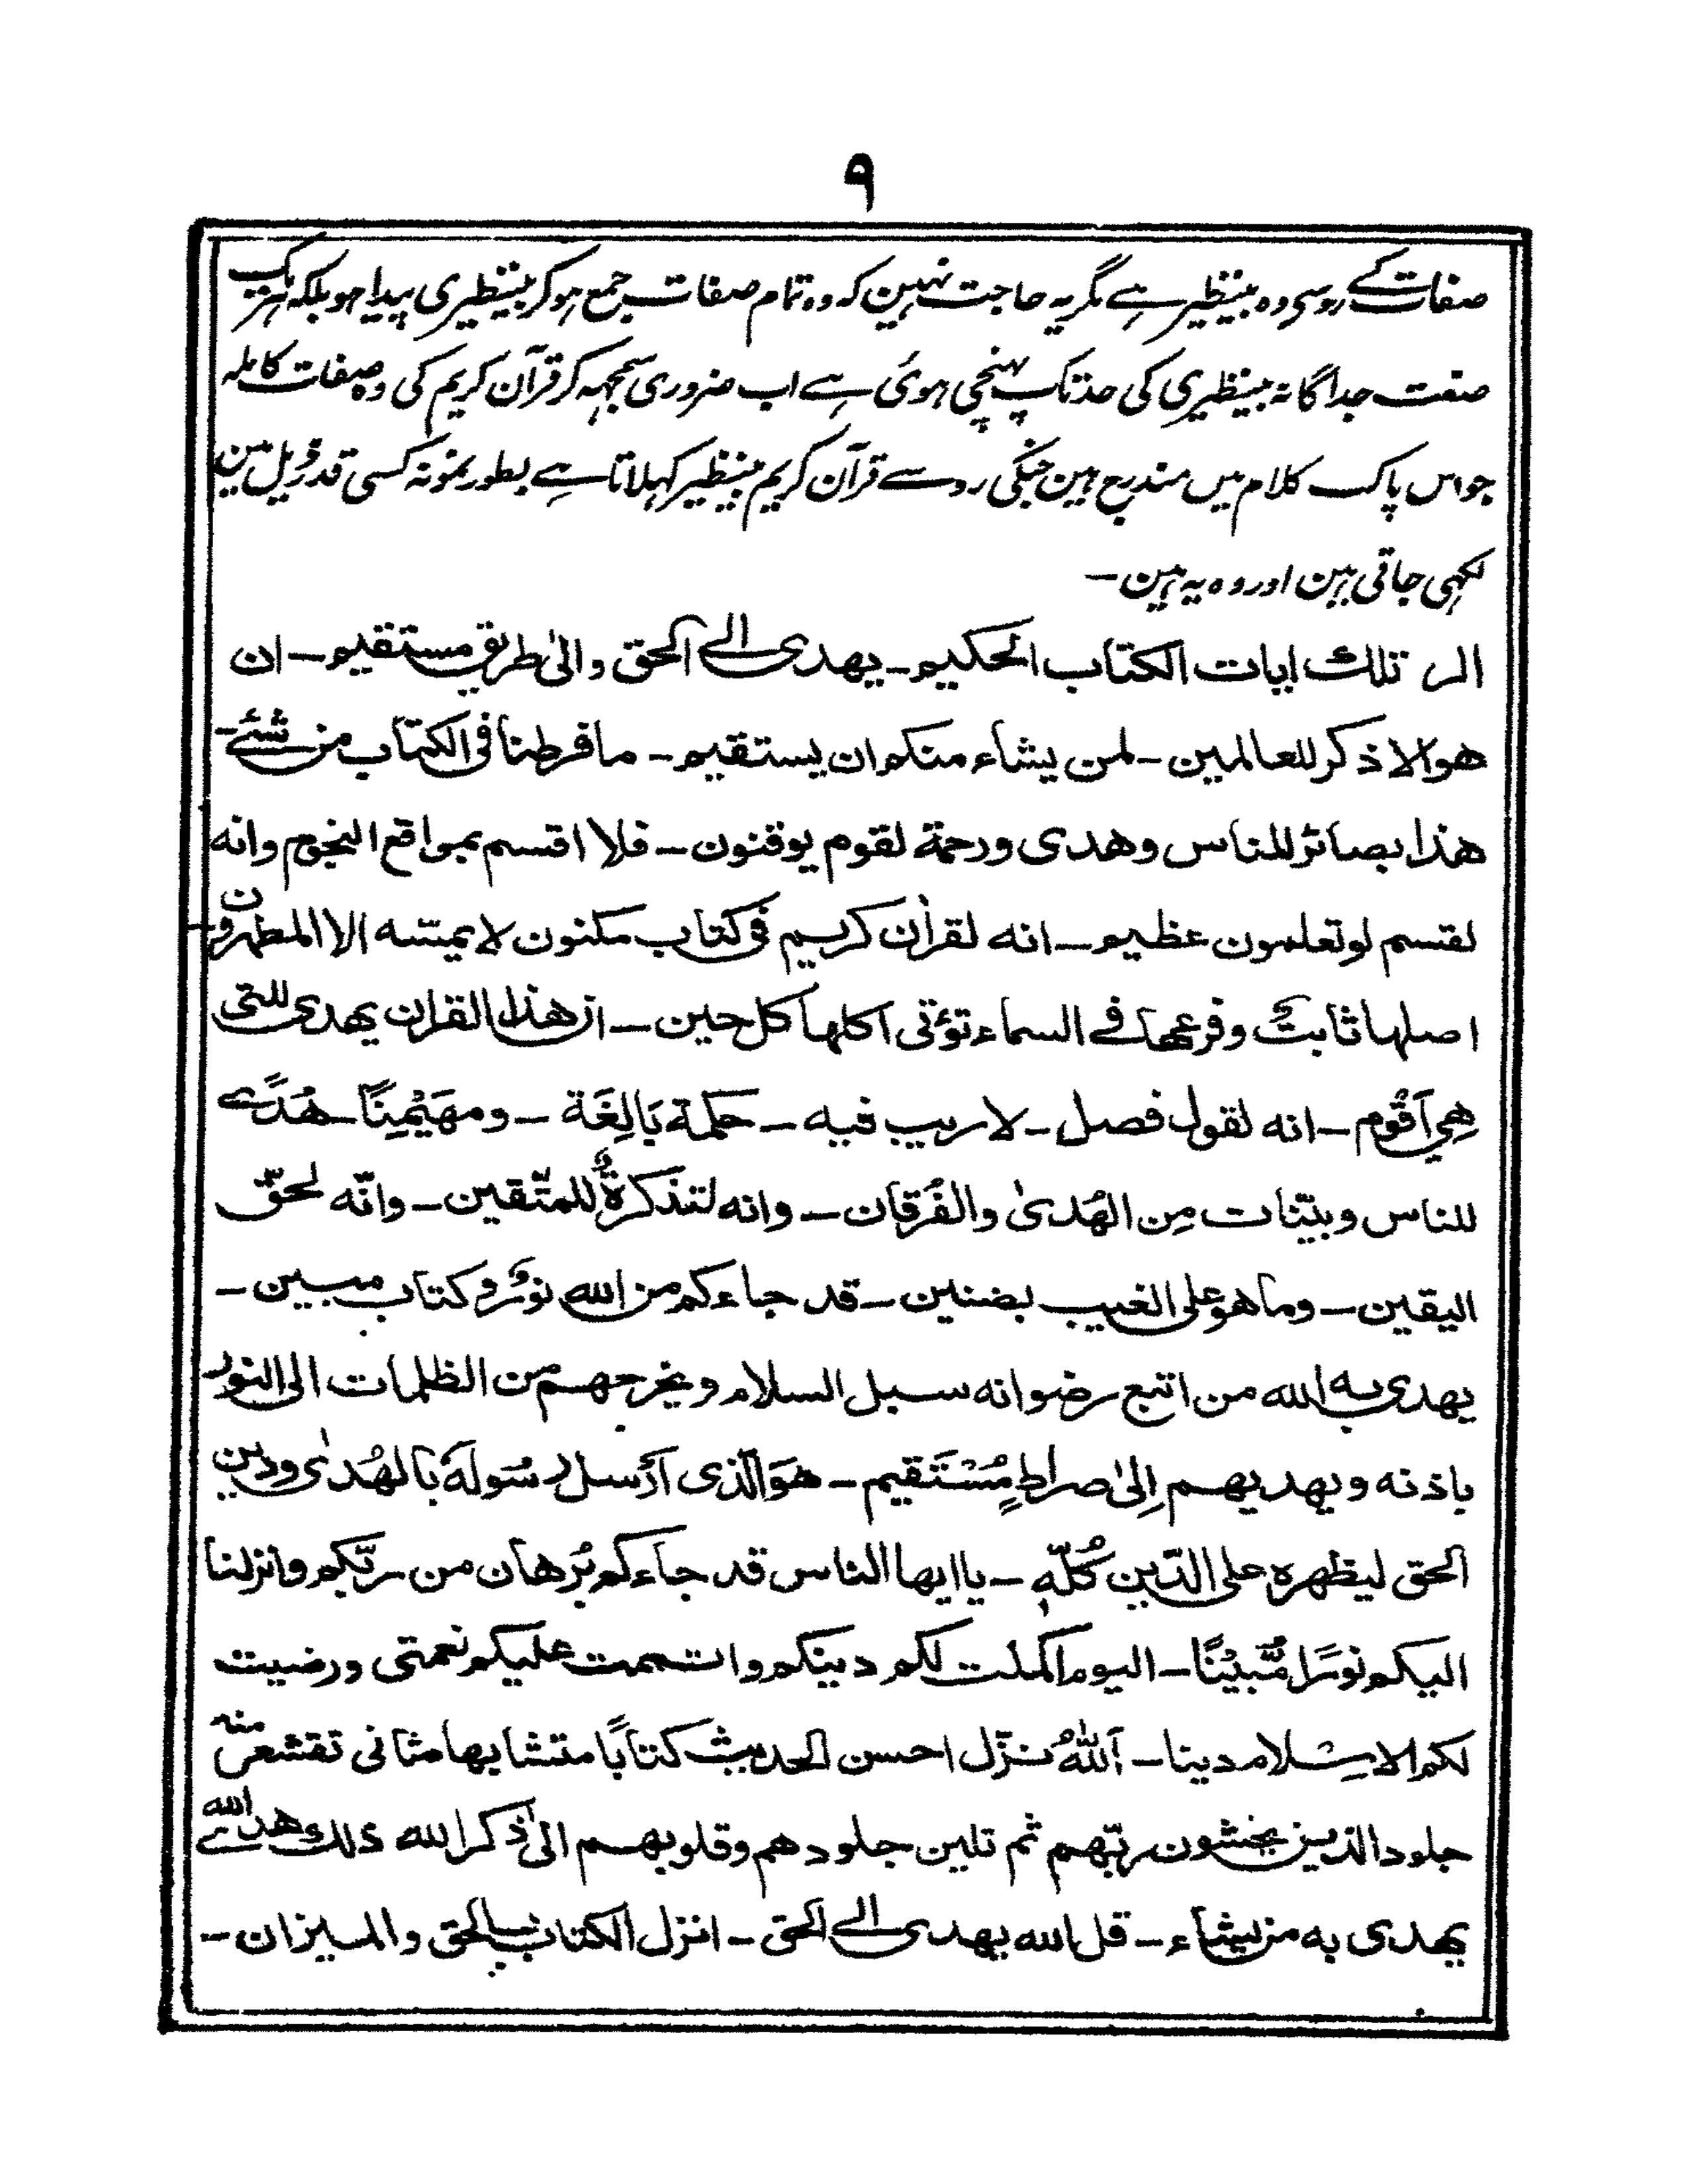 ۹
صفات کے روسی وہ بینظیر ہے مگر یہ حاجت نہین کہ وہ تمام صفات جمع ہو کر بینظیری پیدا ہو بلکہ ہر یک
صفت جداگانہ بینظیری کی حد تک پہنچی ہوئی ہے اب ضروری سمجہہ کر قرآن کریم کی وہ صفات کاملہ
جو اس پاک کلام میں مندرج ہین جنکی رو سے قرآن کریم بینظیر کہلاتا ہے بطور نمونہ کسی قدر ذیل مین
لکہی جاتی ہین اور وہ یہ ہین ـ
الر تلك ايات الكتاب الحكيم ـ يهدى الے الحق والىٰ طريق مستقيم ـ ان
هو الا ذكر للعالمين ـ لمن يشاء منكم ان يستقيم ـ ما فرطنا فى الكتاب من شئے ـ
هذا بصائر للناس وهدى ورحمة لقوم يوقنون ـ فلا اقسم بمواقع النجوم وانه
لقسم لو تعلمون عظيم ـ انه لقراٰن كريم فى كتاب مكنون لا يمسّه الا المطهرون ـ
اصلها ثابت وفرعها فے السماء تؤتى اكلها كل حين ـ ان هذا القران يهدى للتى
هِي اَقْوم ـ انه لقول فصل ـ لا ريب فيه ـ حكمة بَالِغَة ـ ومهَيْمِنًا ـ هُدًے
للناس وبيّنات مِن الهُدىٰ والفُرقان ـ وانه لتذكرةٌ للمتّقين ـ وانّه لحقّ
اليقين ـ وما هو على الغيب بضنين ـ قد جاءكم من الله نورٌ وكتاب مبين ـ
يهدى به الله من اتبع رضوانه سبل السلام ويخرجهم من الظلمات الى النور
باذنه ويهديهم اِلىٰ صراطٍ مُسْتَقيم ـ هوَ الّذى اَرْسل رسُولهٗ بالهُدىٰ ودين
الحق ليظهره على الدّين كُلّهٖ ـ يا ايها الناس قد جاءكم بُرْهان من ربّكم وانزلنا
اليكم نورًا مُّبِيْنًا ـ اليوم اكملت لكم دينكم واتممت عليكم نعمتى ورضيت
لكم الاسِلام دينا ـ اَللّٰهُ نزّل احسن الحديث كتابًا متشابها مثانى تقشعرّ منه
جلود الذين يخشون ربّهم ثم تلين جلودهم وقلوبهم الىٰ ذكر الله ذلك هدے الله
يهدى به من يشاء ـ قل الله يهدى الے الحق ـ انزل الكتاب بالحق والميزان ـ